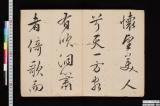 懷望美人
兮天一方客
有吹洞簫
者倚歌而